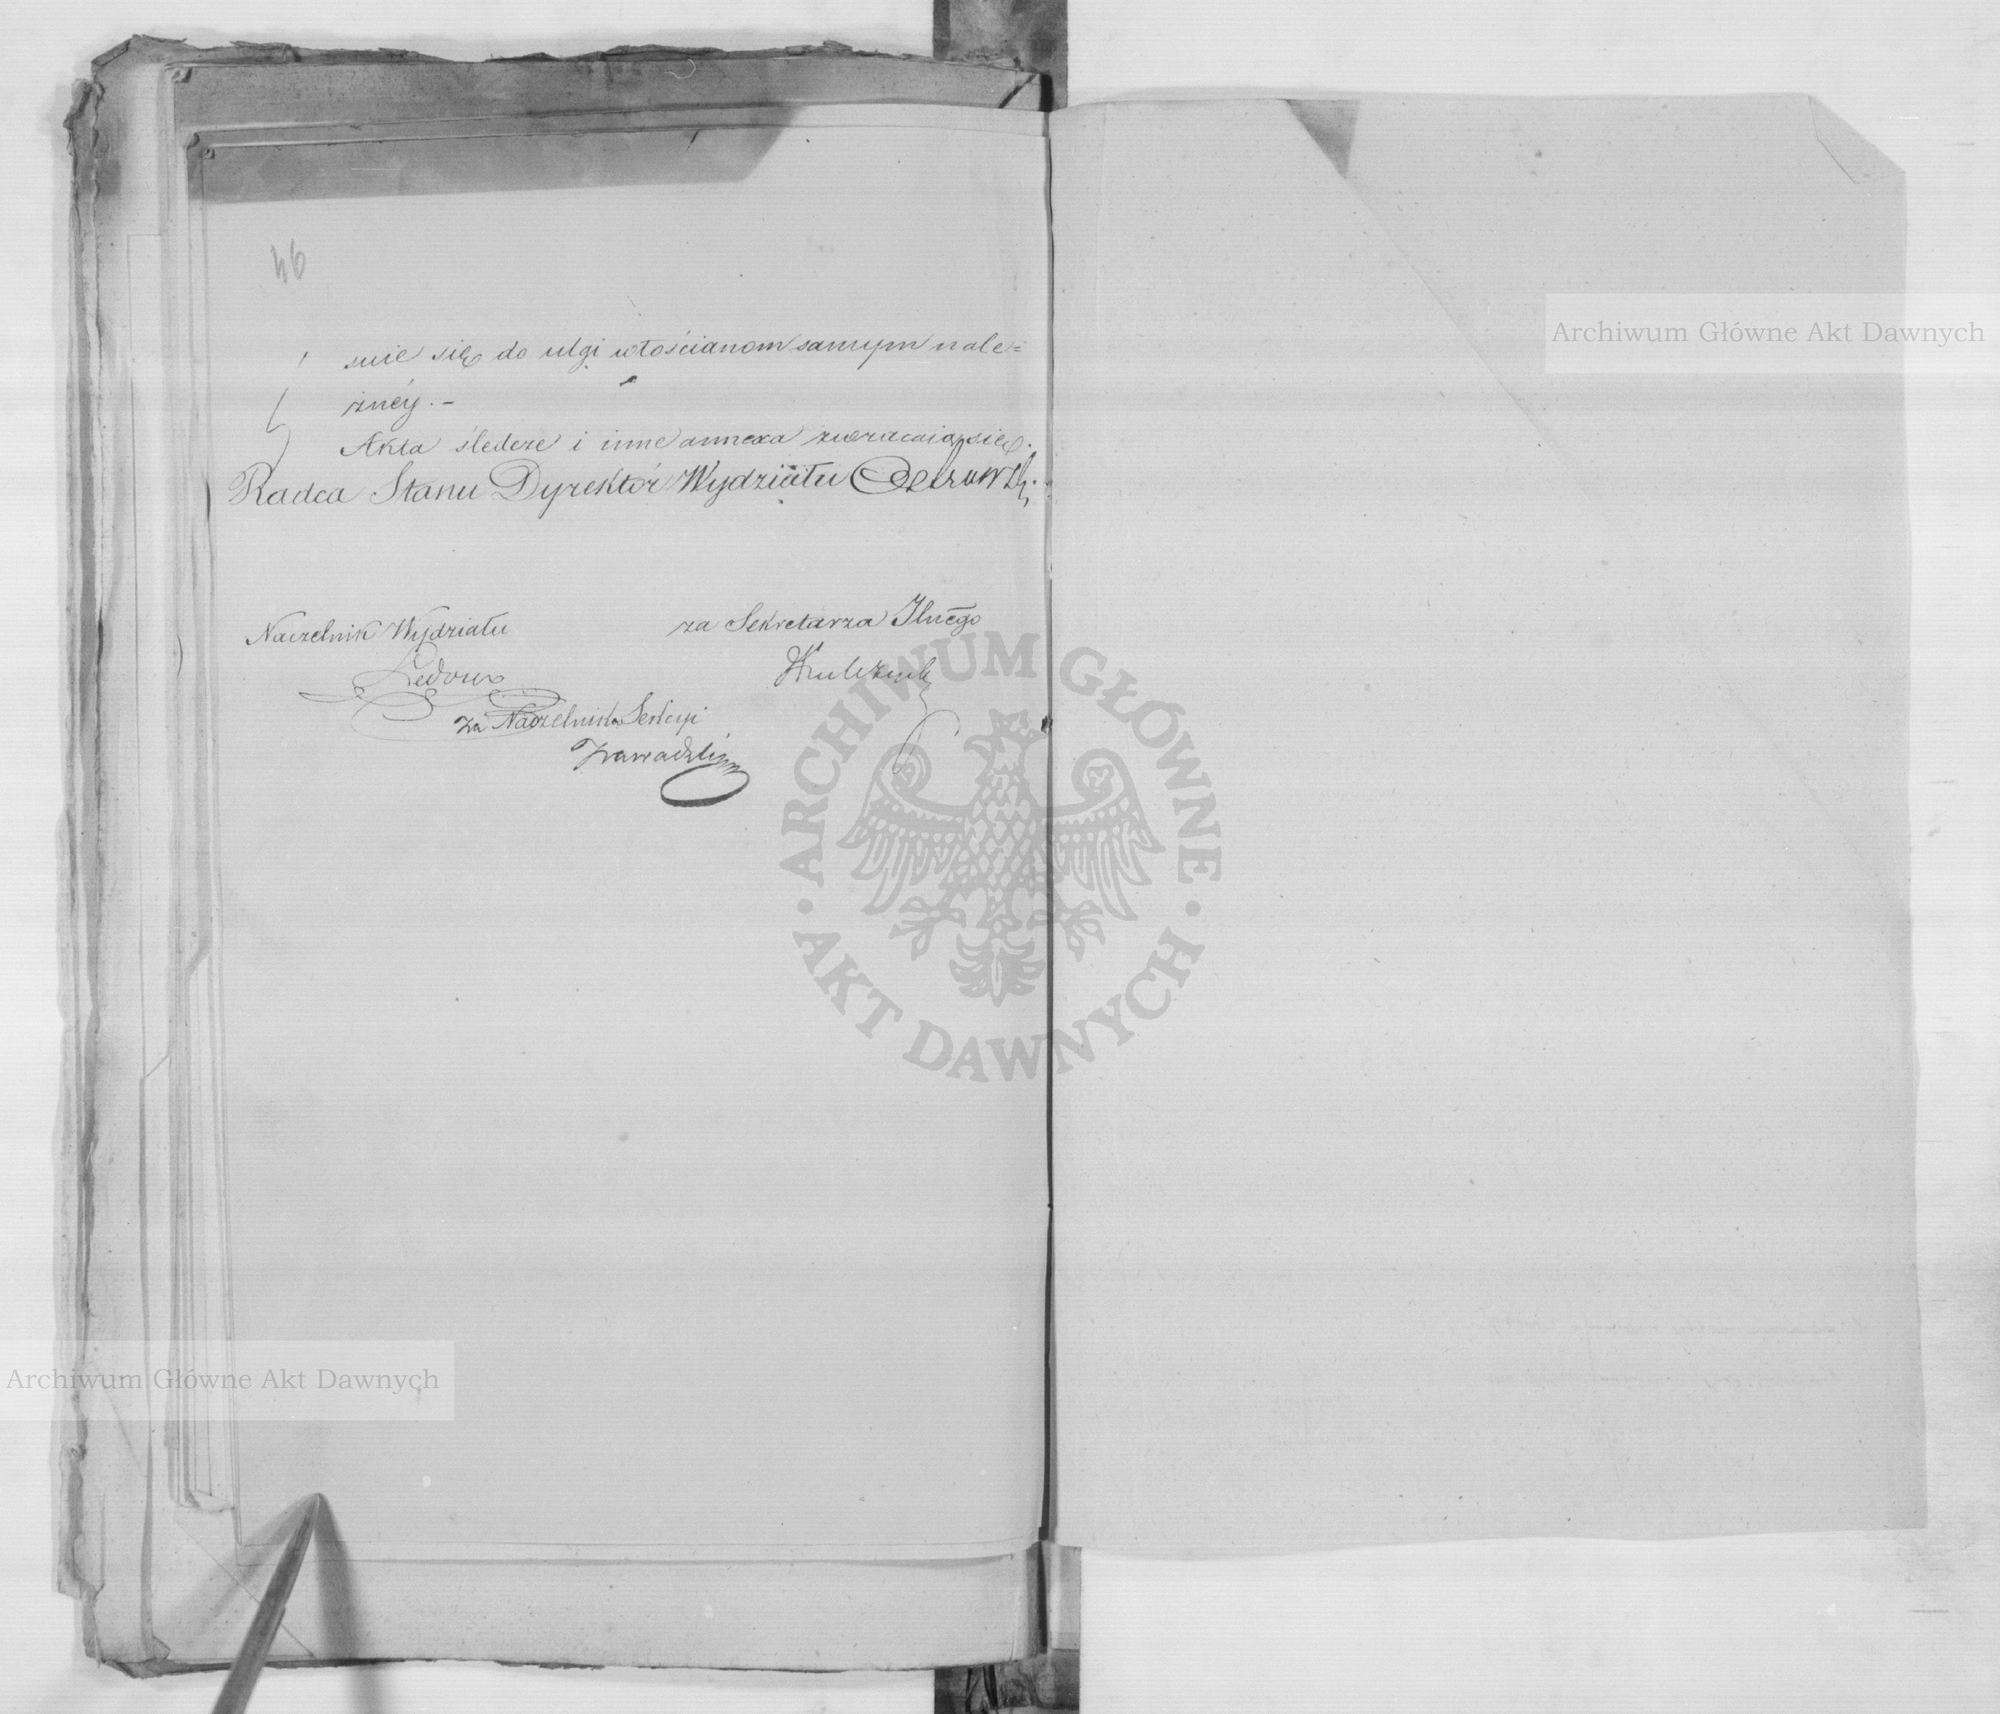 46
suie się do ulgi włościanom samym nale=
żnéy. –
Akta śledcze i inne annexa zwracaią się.
Radca Stanu Dyrektór Wydziału
Naczelnik Wydziału
za Sekretarza Jlnégo
za Naczelnika Sekcyi
Zawadzki
Archiwum Główne Akt Dawnych
ARCHIWUM GŁÓWNE · AKT DAWNYCH ·
Archiwum Główne Akt Dawnych